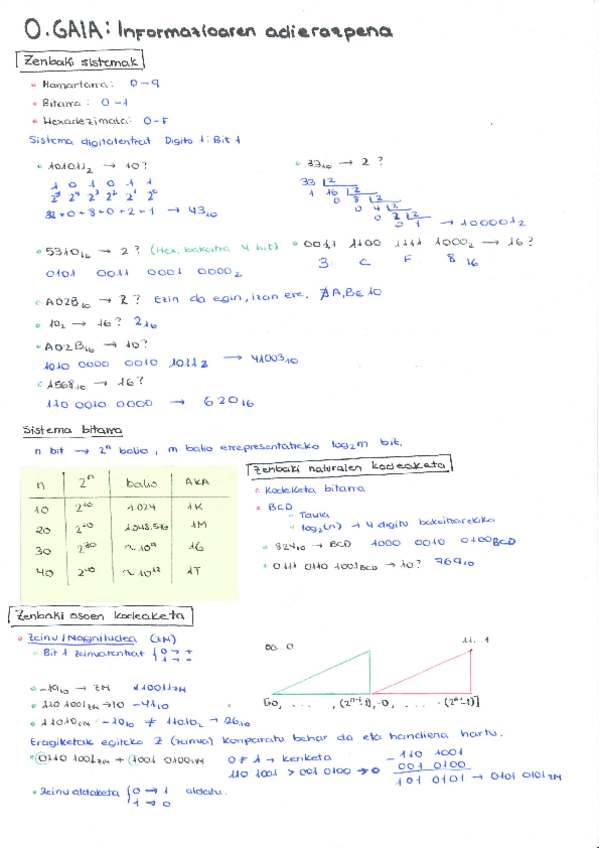 0. GAIA: Informazioaren adierazpena
Zenbaki sistemak
• Hamartarra: 0-9
• Bitarra: 0-1
• Hexadezimala: 0-F
Sistema digitalentzat Digito 1: Bit 1
• 101011₂ → 10?
1 0 1 0 1 1
2⁵ 2⁴ 2³ 2² 2¹ 2⁰
32+0+8+0+2+1 → 43₁₀
• 33₁₀ → 2?
33 2
1 16 2
0 8 2
0 4 2
0 2 2
0 1 → 100001₂
• 5310₁₆ → 2? (Hex. bakoitza 4 bit)
0101 0011 0001 0000₂
• 0011 1100 1111 1000₂ → 16?
3 C F 8 ₁₆
• A02B₁₀ → 2? Ezin da egin, izan ere, ∄A,B∈10
• 10₂ → 16? 2₁₆
• A02B₁₆ → 10?
1010 0000 0010 1011₂ → 41003₁₀
• 1568₁₀ → 16?
110 0010 0000 → 620₁₆
Sistema bitarra
n bit → 2ⁿ balio, m balio errepresentatzeko log₂m bit.
n 2ⁿ balio AKA
10 2¹⁰ 1.024 1K
20 2²⁰ 1.048.576 1M
30 2³⁰ ~10⁹ 1G
40 2⁴⁰ ~10¹² 1T
Zenbaki naturalen kodeaketa
• Kodeketa bitarra
• BCD
◦ Taula
◦ log₂(n) → 4 digitu bakoitzarekiko
• 824₁₀ → BCD 1000 0010 0100BCD
• 0111 0110 1001BCD → 10? 769₁₀
Zenbaki osoen kodeaketa
• Zeinu/Magnitudea (ZM)
- Bit 1 zeinuarentzat { 0 → +
1 → -
• -19₁₀ → ZM 110011ZM
• 110 1001ZM → 10 -41₁₀
• 11010ZM: -10₁₀ ≠ 11010₂ → 26₁₀
00...0
11...1
[0, ... , (2ⁿ⁻¹-1), -0, ... -(2ⁿ⁻¹-1)]
Eragiketak egiteko Z (zeinua) konparatu behar da eta handiena hartu.
• 0110 1001ZM + 1001 0100ZM 0≠1 → kenketa
110 1001 > 001 0100 → 0
- 110 1001
001 0100
101 0101 → 0101 0101ZM
• Zeinu aldaketa { 0 → 1 aldatu.
1 → 0